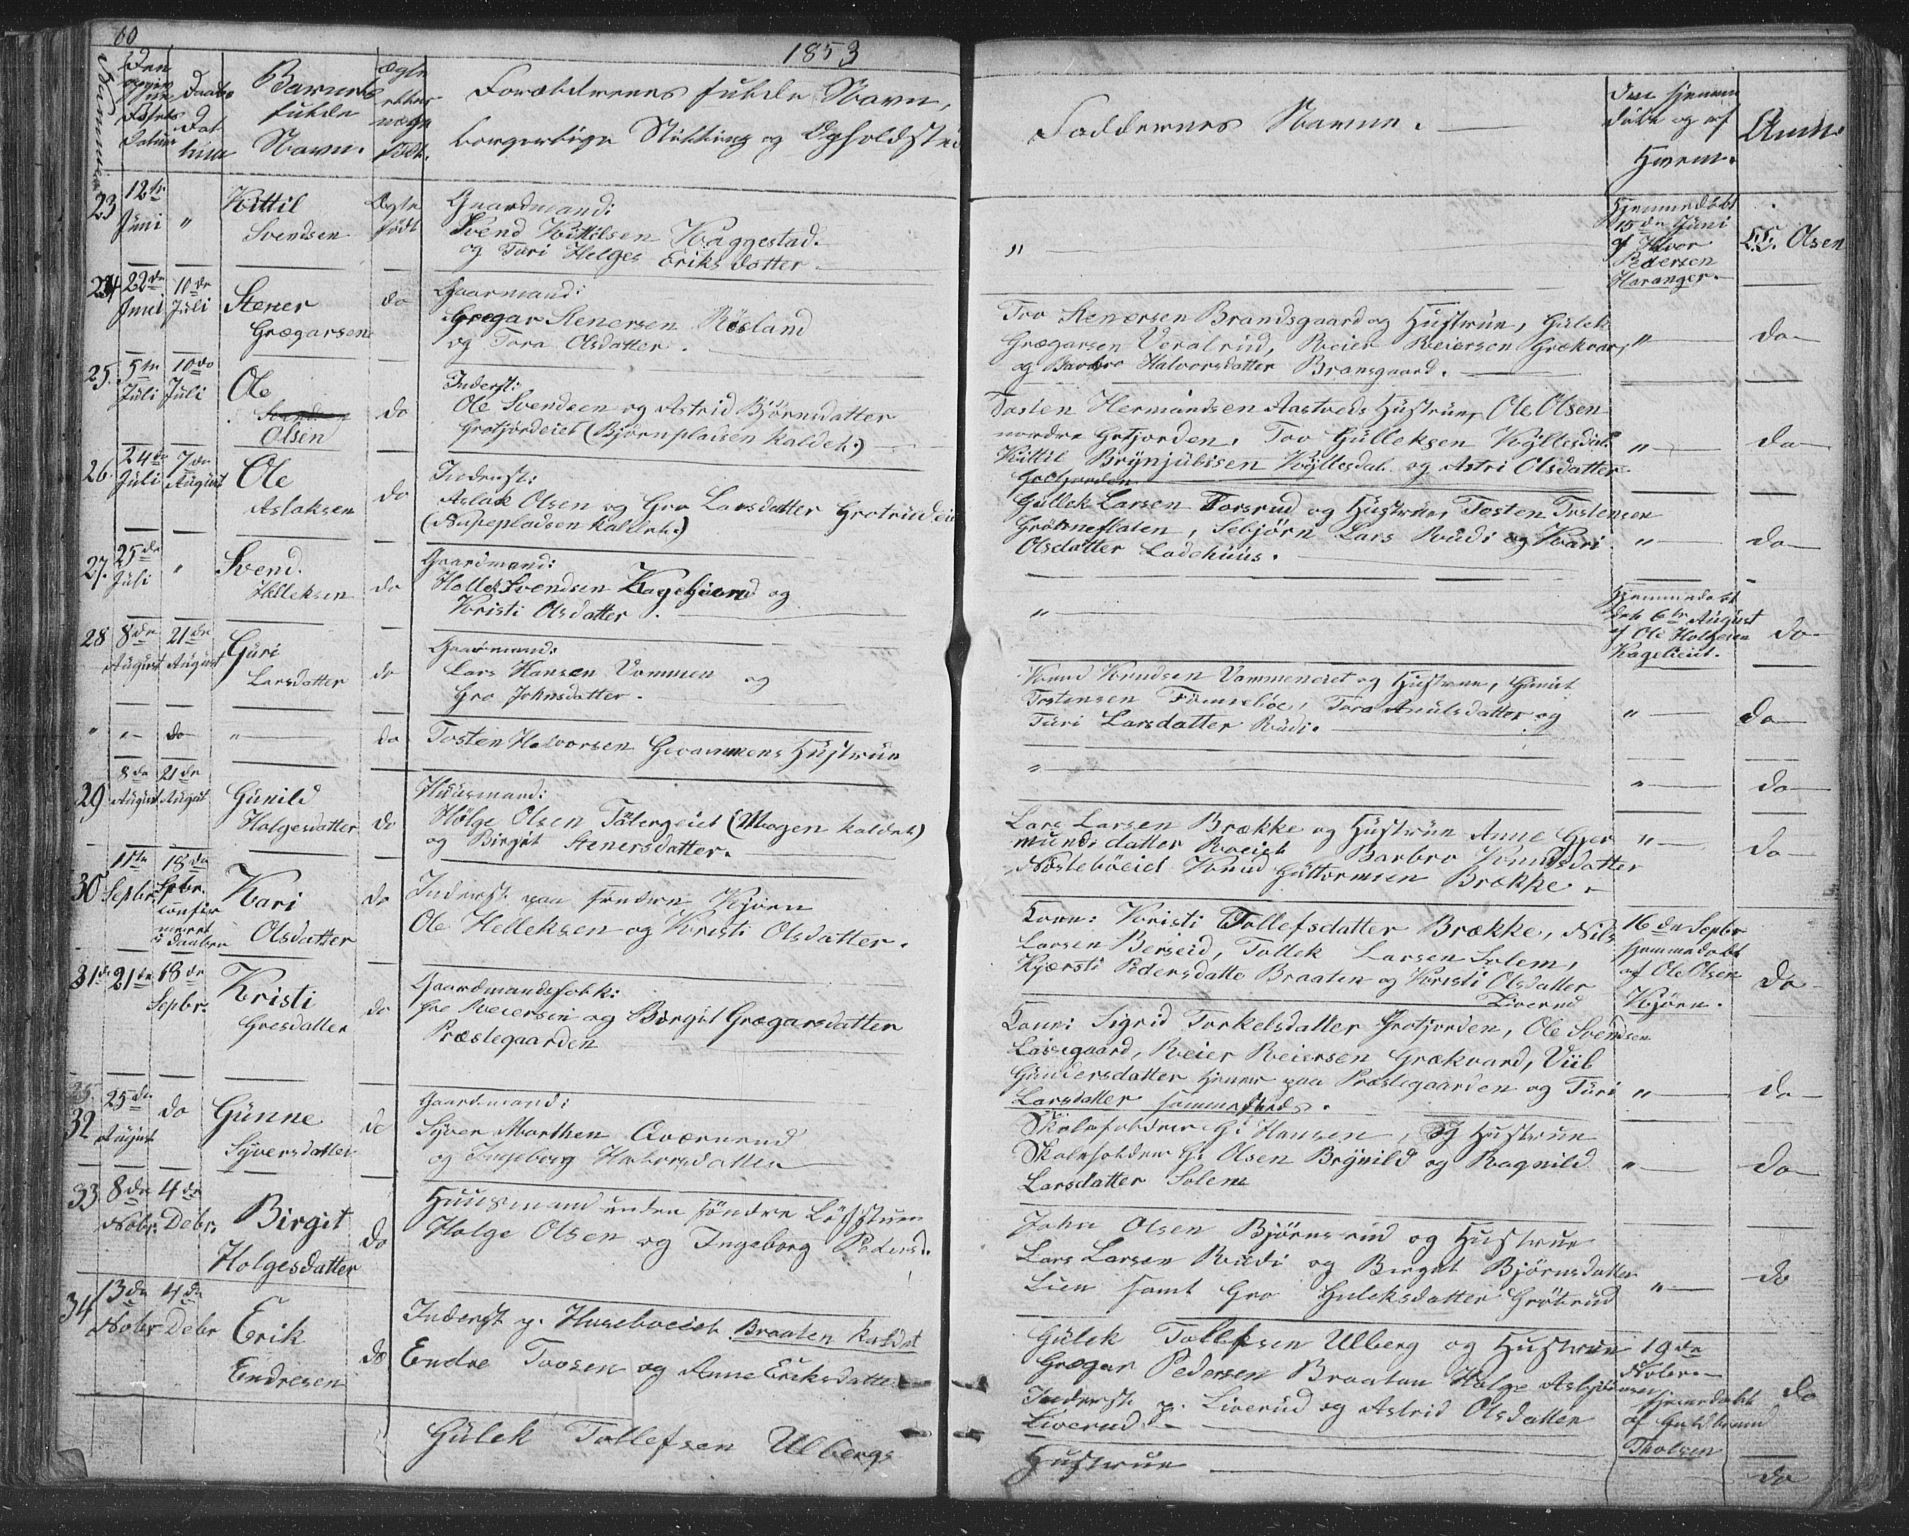 60
1853
Barnets fulde Navn.
Forældrenes fulde Navn,
borgerlige Stilling og Opholdsted
Faddernes Navne.
23 12te Juni " Kittil Svendsen Ægte født
Gaardmand:
Svend Kittilsen Kaggestad.
og Turi Helges Eriksdatter
"
Hjemmedøbt
15de Juni
af Halvor
Pedersen
Haranger.
Olsen
24 22de Juni 10de Juli Stener Grægarsen do
Gaarmand:
Gregar Stenersen Rösland
og Tora Olsdatter.
Tov Stenersen Brandsgaard og Hustrue, Gulek
Grægarsen Veralrud, Reier Reiersen Grøkvar,
og Barbro Halvorsdatter Bransgaard.
" do
25. 5te Juli 10de Juli Ole Olsen do
Inderst:
Ole Svendsen og Astrid Björnsdatter
Grotjordeiet (Björnpladsen kaldet:)
Tosten Hermandsen Aastveds Hustrue, Ole Olsen
nordre Grotjorden. Tov Gulleksen Kyllesdal.
Kittil Brynjulsen Kyllesdal og Astri Olsdatter
Grotjorden
" do
26. 24de Juli 7de August Ole Aslaksen do
Inderst:
Aslak Olsen og Gro Larsdatter Grotrudeie
Gullek Larsen Torsrud og Hustrue, Tosten Tostensen
Grotneflaten, Sebjörn Lars Rudi og Kari
Olsdatter Ladehuus.
" do
27. 25de Juli " Svend Helleksen do
Gaardmand:
Hollek Svendsen Kagehuond og
Kristi Olsdatter.
"
Hjemmedøbt
den 6te August
af Ole Holgesen
Kageieiet.
do
28 8de August 21de August Guri Larsdatter do
Gaarmand:
Lars Hansen Vammen og
Gro Johnsdatter.
Knud Knudsen Vammeneiet og Hustrue, Gunil
Tostensen Fönnebøe, Tora Knudsdatter og
Turi Larsdatter Rudi.
" do
" " do " do Tosten Halvorsen Gvammens Hustrue
" " do
29 8de August 21de August Gunild Holgesdatter do
Huusmand:
Holge Olsen Tälergeiet (Mogen kaldet)
og Birgit Stenersdatter.
Lars Larsen Brække og Hustrue Anne Gjer
mundsdatter Roeigt Barbro Knudsdatter
Næslebøeiet Knud Guttormsen Brække.
" do
30 11te Sepbr. 18de Sepbr. confirmeret i Daaben Kari Olsdatter do
Inderst paa söndre Kjörn
Ole Helleksen og Kristi Olsdatter.
Kone: Kristi Tollefsdatter Brække, Nils
Larsen Berseid, Tollek Larsen Solem,
Kjærsti Pedersdatte Braaten og Kristi Olsdatter
Liverud
16de Sepbr
hjemmedøbt
af Ole Olsen
Kjörn.
do
31 21de 18de Sepbr. Kristi Gresdatter do
Gaardmandsfolk:
Gre Reiersen og Birgit Grægarsdatter
Præstegaarden
Kone: Sigrid Torkelsdatter Grotjorden, Ole Svendsen
Løsiegaard, Reier Reiersen Grækvard, Viib
Gundersdatter tjener paa Præstegaarden og Turi
Larsdatter sammesteds.
" do
32 25de August do Gunne Syversdatter do
Gaardmand:
Syver Marthen Qværnrud
og Ingeborg Halvorsdatter
Skoleholder G. Hansen, og Hustrue
Skoleholder G. Olsen Brynild og Ragnild
Larsdatter Solem
" do
33 8de Nobr. 4de Debr. Birgit Holgesdatter do
Huusmand under söndre Löfthuun
Holge Olsen og Ingeborg Pedersd.
John Olsen Björnsrud og Hustrue
Lars Larsen Rudi og Birgit Björnsdatter
Lien samt Gro Guleksdatter Grøtrud
" do
34 13de Nobr 4de Debr Erik Endresen do
Inderst p. Huseboeiet Braaten kaldet
Endre Tovsen og Anne Eriksdatter
Gulek Tollefsen Ulberg og Hustrue
Grægar Pedersen Braatan Holge Asbjörnsen
Inderst p. Liverud og Astrid Olsdatter
Liverud
19de
Nobr.
hjemmedøbt
af Guldbrand
Tholsen
do
Gulek Tollefsen Ulbergs
Hustrue
do